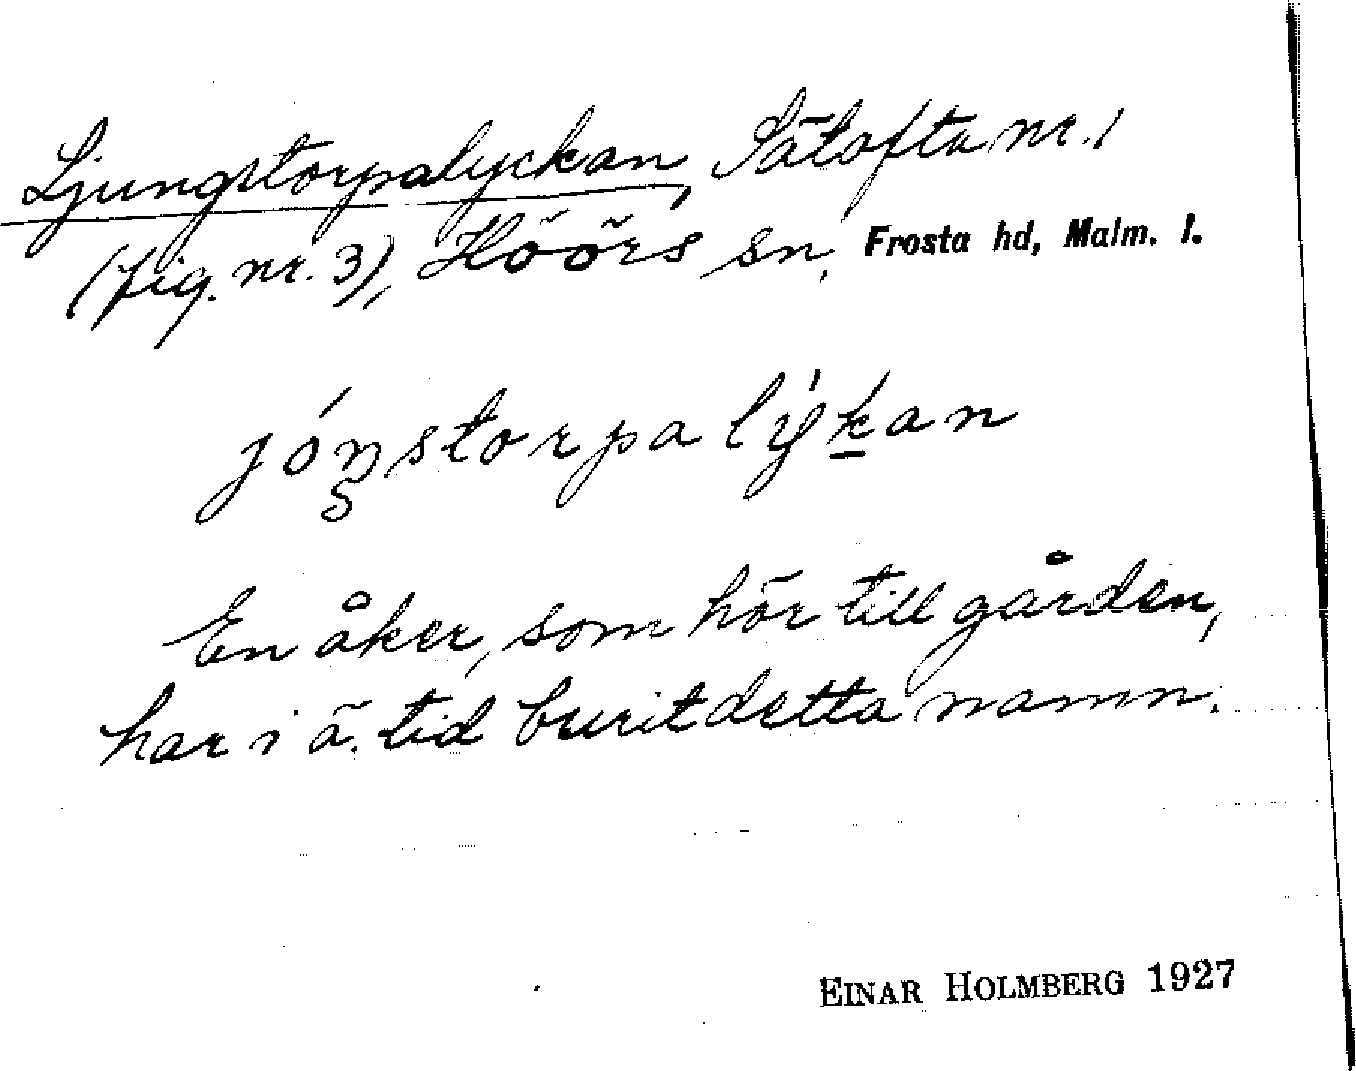 Ljungstorpalyckan, Sätofta nr. 1
(fig. nr. 3), Höörs sn, Frosta hd, Malm. l.
jóŋstorpalýkan
En åker, som hör till gården,
har i ä. tid burit detta namn.
EINAR HOLMBERG 1927